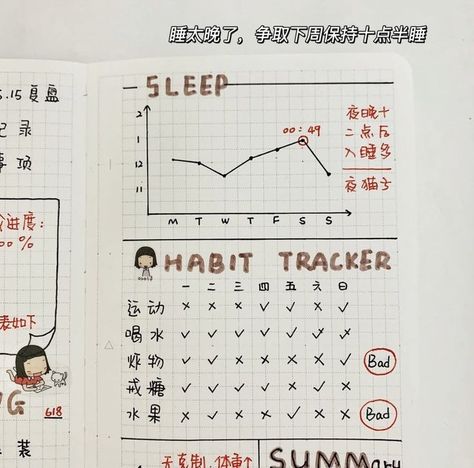 睡太晚了，争取下周保持十点半睡
5.15复盘
录
事项
进度:
00%
表如下
618
装
SLEEP
2
1
12
11
00:49
M T W T F S S
夜晚十
二点后
入睡多
夜猫子
HABIT TRACKER
一 二 三 四 五 六 日
运动
喝水
炸物 Bad
戒糖
水果 Bad
无克制,体重↑
SUMMary